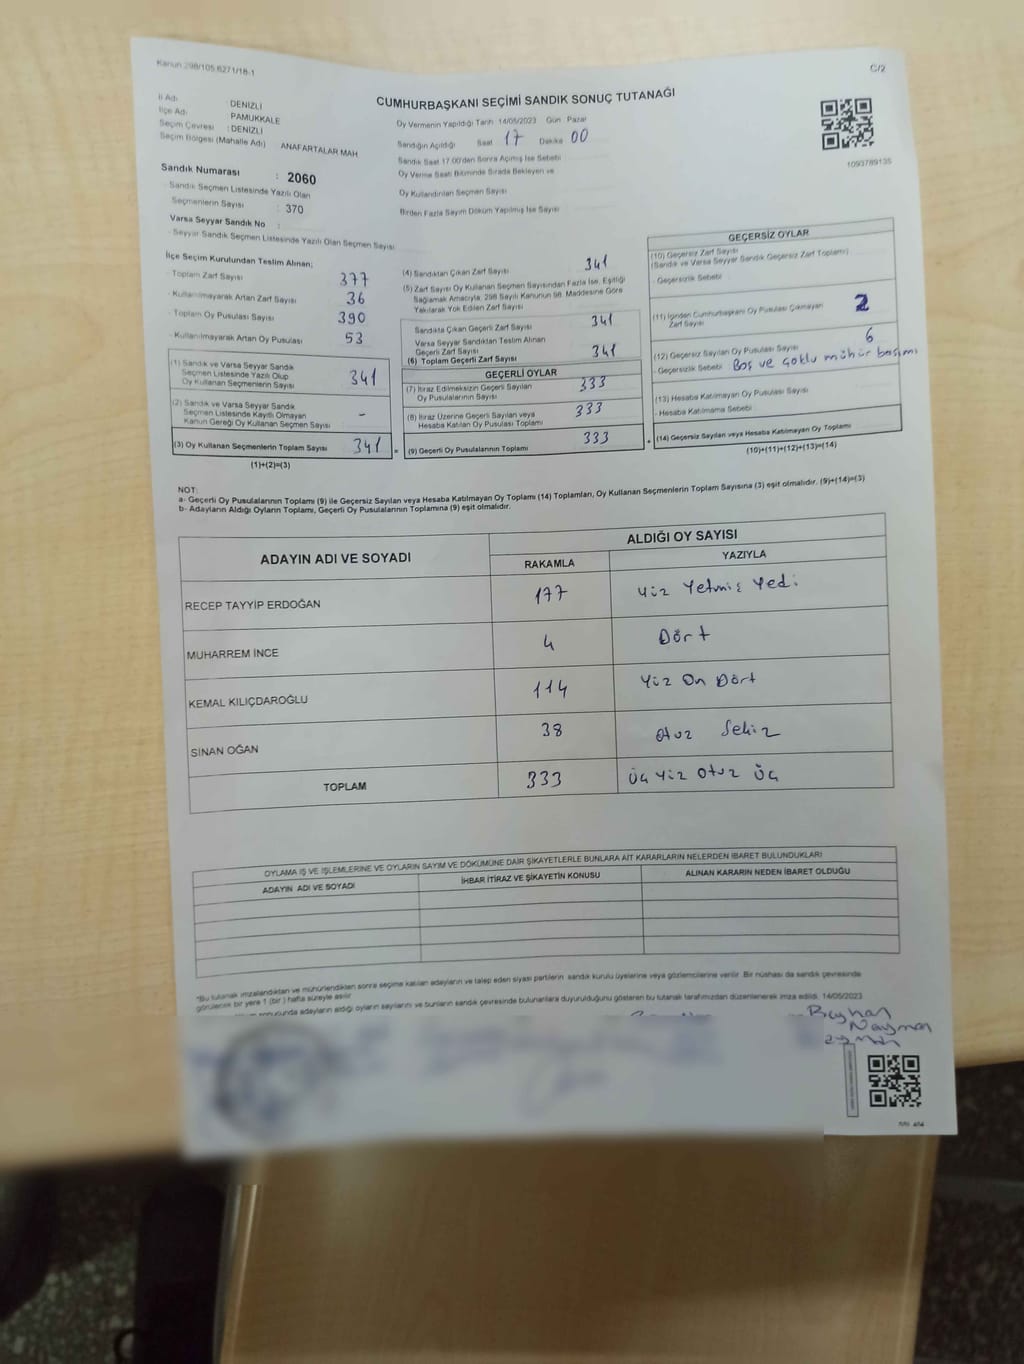 Kanun 298/105.6271/18-1
C/2
CUMHURBAŞKANI SEÇİMİ SANDIK SONUÇ TUTANAĞI
İl Adı DENİZLİ
İlçe Adı PAMUKKALE
Seçim Çevresi : DENİZLİ
Seçim Bölgesi (Mahalle Adı) ANAFARTALAR MAH
Sandık Numarası : 2060
Sandık Seçmen Listesinde Yazılı Olan
Seçmenlerin Sayısı : 370
Varsa Seyyar Sandık No :
Seyyar Sandık Seçmen Listesinde Yazılı Olan Seçmen Sayısı
Oy Vermenin Yapıldığı Tarih 14/05/2023 Gün Pazar
Sandığın Açıldığı Saat 17 Dakika 00
Sandık Saat 17.00'den Sonra Açılmış İse Sebebi
Oy Verme Saati Bitiminde Sırada Bekleyen ve
Oy Kullandırılan Seçmen Sayısı
Birden Fazla Sayım Döküm Yapılmış İse Sayısı
1093789135
İlçe Seçim Kurulundan Teslim Alınan;
Toplam Zarf Sayısı 377
Kullanılmayarak Artan Zarf Sayısı 36
Toplam Oy Pusulası Sayısı 390
Kullanılmayarak Artan Oy Pusulası 53
(1) Sandık ve Varsa Seyyar Sandık
Seçmen Listesinde Yazılı Olup
Oy Kullanan Seçmenlerin Sayısı 341
(2) Sandık ve Varsa Seyyar Sandık
Seçmen Listesinde Kayıtlı Olmayan
Kanun Gereği Oy Kullanan Seçmen Sayısı -
(3) Oy Kullanan Seçmenlerin Toplam Sayısı 341 =
(1)+(2)=(3)
(4) Sandıktan Çıkan Zarf Sayısı 341
(5) Zarf Sayısı Oy Kullanan Seçmen Sayısından Fazla İse, Eşitliği
Sağlamak Amacıyla, 298 Sayılı Kanunun 98. Maddesine Göre
Yakılarak Yok Edilen Zarf Sayısı
Sandıkta Çıkan Geçerli Zarf Sayısı 341
Varsa Seyyar Sandıktan Teslim Alınan
Geçerli Zarf Sayısı
(6) Toplam Geçerli Zarf Sayısı 341
GEÇERLİ OYLAR
(7) İtiraz Edilmeksizin Geçerli Sayılan
Oy Pusulalarının Sayısı 333
(8) İtiraz Üzerine Geçerli Sayılan veya
Hesaba Katılan Oy Pusulası Toplamı 333
(9) Geçerli Oy Pusulalarının Toplamı 333 +
GEÇERSİZ OYLAR
(10) Geçersiz Zarf Sayısı
(Sandık ve Varsa Seyyar Sandık Geçersiz Zarf Toplamı)
- Geçersizlik Sebebi
(11) İçinden Cumhurbaşkanı Oy Pusulası Çıkmayan
Zarf Sayısı 2
(12) Geçersiz Sayılan Oy Pusulası Sayısı 6
- Geçersizlik Sebebi Boş ve çoklu mühür basımı
(13) Hesaba Katılmayan Oy Pusulası Sayısı
- Hesaba Katılmama Sebebi
(14) Geçersiz Sayılan veya Hesaba Katılmayan Oy Toplamı
(10)+(11)+(12)+(13)=(14)
NOT:
a- Geçerli Oy Pusulalarının Toplamı (9) ile Geçersiz Sayılan veya Hesaba Katılmayan Oy Toplamı (14) Toplamları, Oy Kullanan Seçmenlerin Toplam Sayısına (3) eşit olmalıdır. (9)+(14)=(3)
b- Adayların Aldığı Oyların Toplamı, Geçerli Oy Pusulalarının Toplamına (9) eşit olmalıdır.
ADAYIN ADI VE SOYADI ALDIĞI OY SAYISI
RAKAMLA YAZIYLA
RECEP TAYYİP ERDOĞAN 177 Yüz Yetmiş Yedi
MUHARREM İNCE 4 Dört
KEMAL KILIÇDAROĞLU 114 Yüz On Dört
SİNAN OĞAN 38 Otuz Sekiz
TOPLAM 333 Üç Yüz Otuz Üç
OYLAMA İŞ VE İŞLEMLERİNE VE OYLARIN SAYIM VE DÖKÜMÜNE DAİR ŞİKAYETLERLE BUNLARA AİT KARARLARIN NELERDEN İBARET BULUNDUKLARI
ADAYIN ADI VE SOYADI İHBAR İTİRAZ VE ŞİKAYETİN KONUSU ALINAN KARARIN NEDEN İBARET OLDUĞU
*Bu tutanak imzalandıktan ve mühürlendikten sonra seçime katılan adayların ve talep eden siyasi partilerin sandık kurulu üyelerine veya gözlemcilerine verilir. Bir nüshası da sandık çevresinde
görülecek bir yere 1 (bir) hafta süreyle asılır.
sonucunda adayların aldığı oyların sayılarını ve bunların sandık çevresinde bulunanlara duyurulduğunu gösteren bu tutanak tarafımızdan düzenlenerek imza edildi. 14/05/2023
Beyhan
Nayman